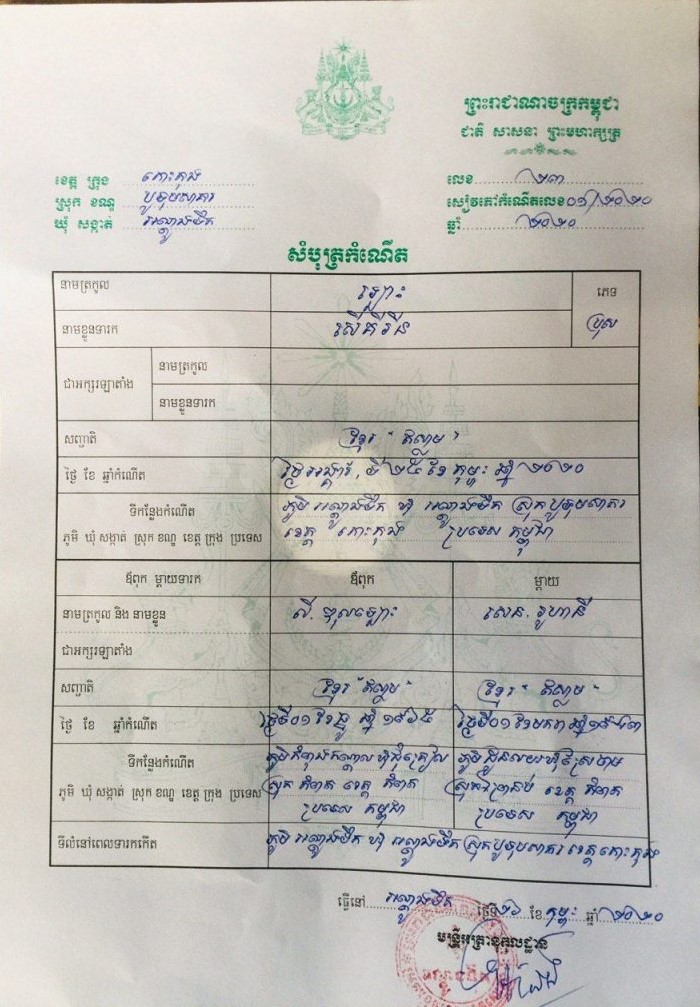 ព្រះរាជាណាចក្រកម្ពុជា
ជាតិ សាសនា ព្រះមហាក្សត្រ
ខេត្ត ក្រុង កោះកុង
ស្រុក ខណ្ឌ បូទុមសាគរ
ឃុំ សង្កាត់ អណ្តូងទឹក
លេខ ២៣
សៀវភៅកំណើតលេខ ០១/២០២០
ឆ្នាំ ២០២០
សំបុត្រកំណើត
នាមត្រកូល ឡោះ
ភេទ
នាមខ្លួនទារក
ប្រុស
ជាអក្សរឡាតាំង
នាមត្រកូល
នាមខ្លួនទារក
សញ្ជាតិ ខ្មែរ "ឥស្លាម"
ថ្ងៃ ខែ ឆ្នាំកំណើត ថ្ងៃអង្គារ, ទី២៥ ខែ កុម្ភៈ ឆ្នាំ ២០២០
ទីកន្លែងកំណើត
ភូមិ ឃុំ សង្កាត់ ស្រុក ខណ្ឌ ខេត្ត ក្រុង ប្រទេស
ភូមិ អណ្តូងទឹក ឃុំ អណ្តូងទឹក ស្រុក បូទុមសាគរ
ខេត្ត កោះកុង ប្រទេស កម្ពុជា
ឪពុក ម្តាយទារក
ឪពុក
ម្តាយ
នាមត្រកូល និង នាមខ្លួន
សេន.
ជាអក្សរឡាតាំង
សញ្ជាតិ ខ្មែរ "ឥស្លាម" ខ្មែរ "ឥស្លាម"
ថ្ងៃ ខែ ឆ្នាំកំណើត ថ្ងៃទី០១ ខែធ្នូ ឆ្នាំ ថ្ងៃទី០១ ខែមករា ឆ្នាំ
ទីកន្លែងកំណើត
ភូមិ ឃុំ សង្កាត់ ស្រុក ខណ្ឌ ខេត្ត ក្រុង ប្រទេស
ស្រុក កំពត ខេត្ត កំពត
ប្រទេស កម្ពុជា
ខេត្ត កំពត
ប្រទេស កម្ពុជា
ទីលំនៅពេលទារកកើត ភូមិ អណ្តូងទឹក ឃុំ អណ្តូងទឹក ស្រុកបូទុមសាគរ ខេត្តកោះកុង
ធ្វើនៅ អណ្តូងទឹក ថ្ងៃទី ២៦ ខែ កុម្ភៈ ឆ្នាំ ២០២០
មន្ត្រីអត្រានុកូលដ្ឋាន